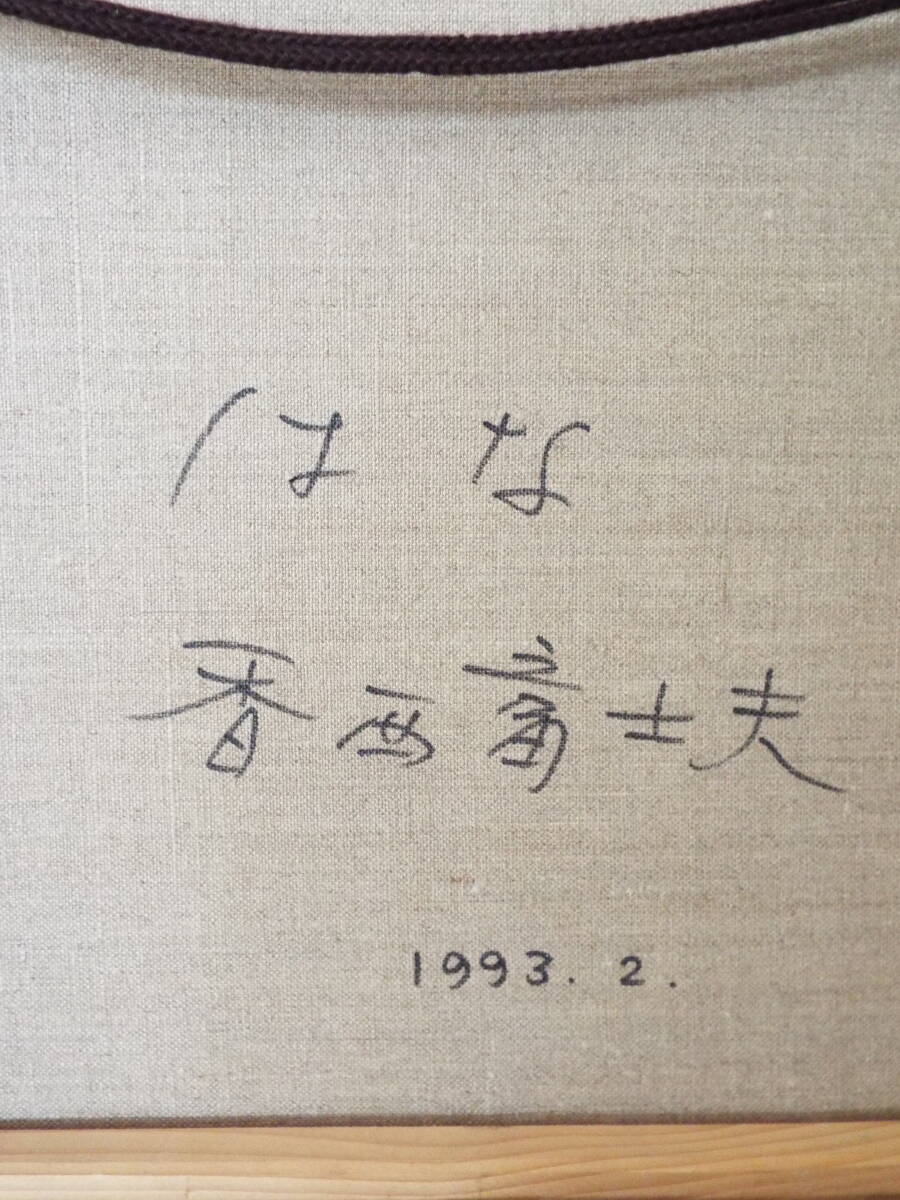 はな
香西富士夫
1993. 2.